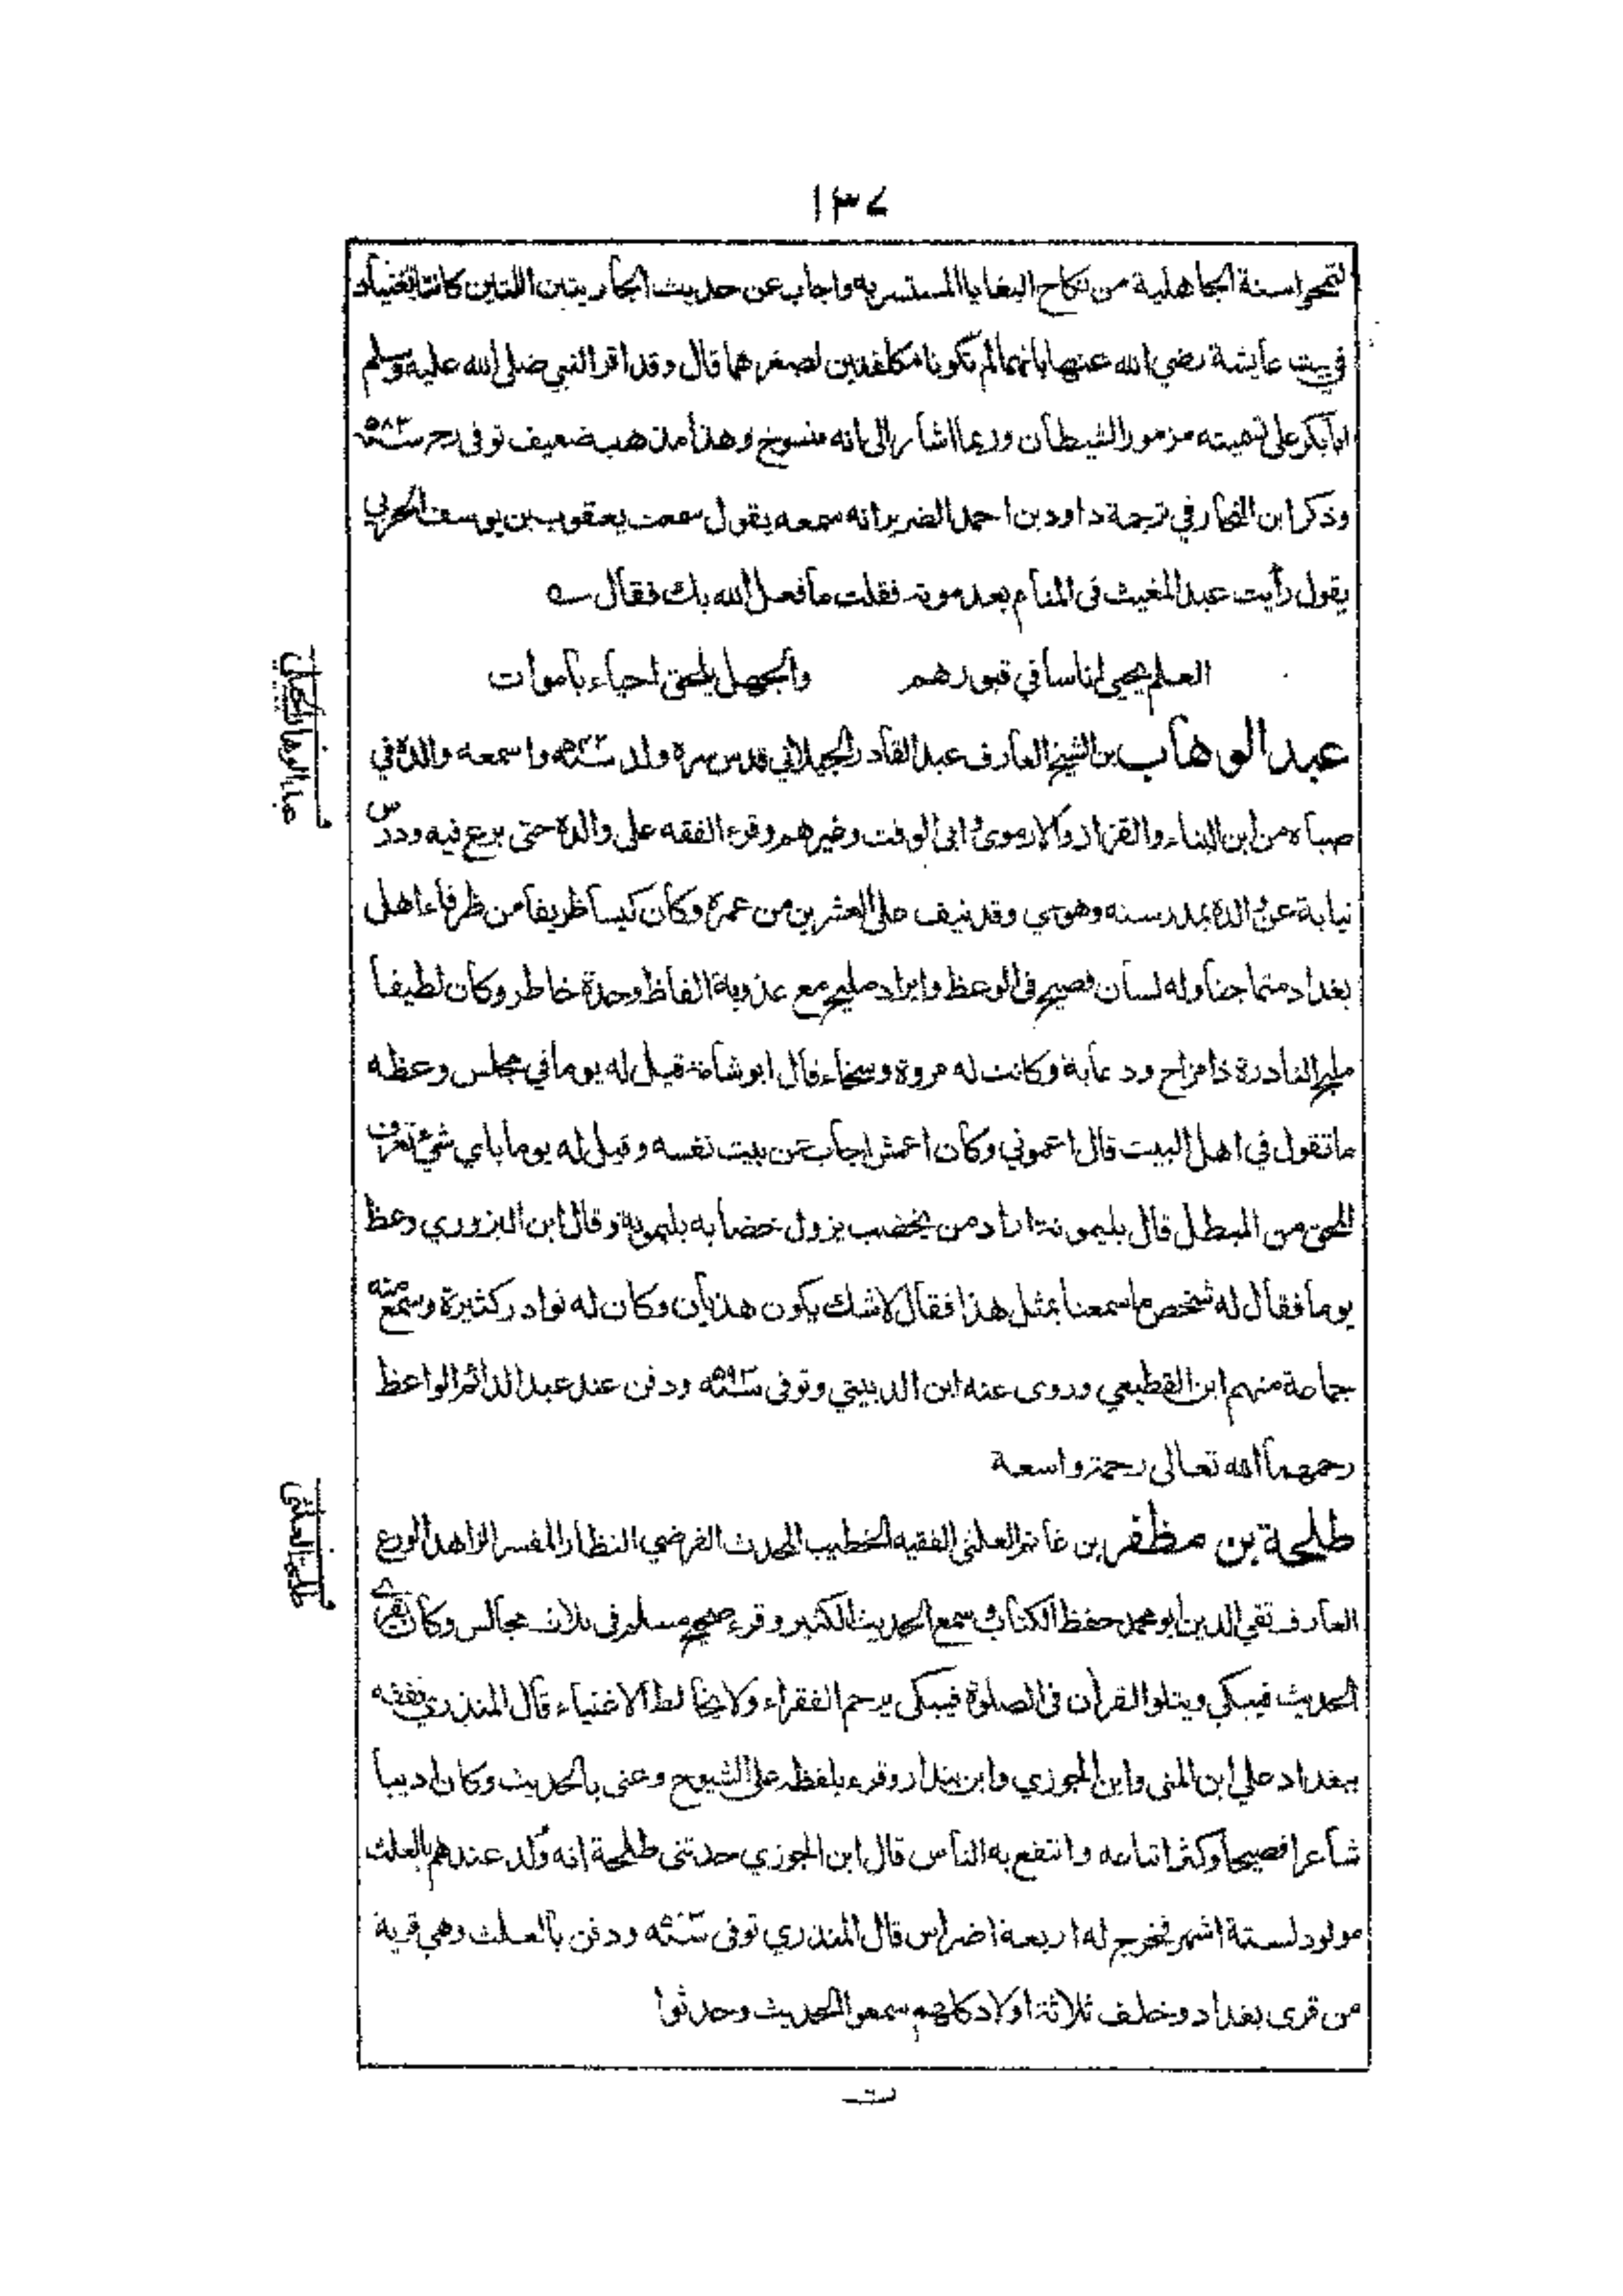 ١٣٧
لتمحوا سنة الجاهلية من نكاح البغايا المستسر به واجاب عن حديث الجاريتين اللتين كانتا تغنيان
في بيت عايشة رضي الله عنها بانهما لم تكونا مكلفتين لصغرهما قال وقد اقر النبي صلى الله عليه وسلم
ابا بكر على تسميته مزمور الشيطان وربما اشار الى انه منسوخ وهذا مذهب ضعيف توفى رح سنة ٥٨٣
وذكر ابن النجار في ترجمة داود بن احمد الضرير انه سمعه يقول سمعت يعقوب بن يوسف الحربي
يقول رأيت عبد المغيث فى المنام بعد موته فقلت ما فعل الله بك فقال ــه
العلم يحيي اناسا في قبورهم والجهل يلحق احياء باموات
عبد الوهاب بن الشيخ العارف عبد القادر الجيلاني قدس سره ولد سنة ٥٢٢ه واسمعه والده في
صباه من ابن البناء والقزاز والارموى وابى الوقت وغيرهم وقرء الفقه على والده حتى برع فيه ودرس
نيابة عن والده بمدرسته وهو حي وقد نيف على العشرين من عمره وكان كيسا ظريفا من ظرفاء اهل
بغداد متماجنا وله لسان فصيح فى الوعظ وايراد مليح مع عذوبة الفاظ وحدة خاطر وكان لطيفا
مليح النادرة ذا مزاح ودعابة وكانت له مروة وسخاء قال ابو شامة قيل له يوما في مجلس وعظه
ما تقول في اهل البيت قال اعموني وكان اعمش اجاب عن بيت نفسه وقيل له يوما باي شيء تعرف
المحق من المبطل قال بليمونة اراد من يخضب يزول خضابه بليمونة وقال ابن البزوري وعظ
يوما فقال له شخص ما سمعنا بمثل هذا فقال لا شك يكون هذيان وكان له نوادر كثيرة وسمع منه
جماعة منهم ابن القطيعي وروى عنه ابن الدبيثي وتوفى سنة ٥٩٣ه ودفن عند عبد الدائم الواعظ
رحمهما الله تعالى رحمة واسعة
طلحة بن مظفر بن غانم العلثى الفقيه الخطيب المحدث الفرضي النظار المفسر الزاهد الورع
العارف تقي الدين ابو محمد حفظ الكتاب وسمع الحديث الكثير وقرء صحيح مسلم فى ثلاث مجالس وكان يقرئ
الحديث فيبكي ويتلو القرأن فى الصلوة فيبكى يرحم الفقراء ولا يخالط الاغنياء قال المنذري تفقه
ببغداد علي ابن المنى وابن الجوزي وابن بندار وقرء بلفظه على الشيوخ وعنى بالحديث وكان اديبا
شاعرا فصيحا وكثر اتباعه وانتفع به الناس قال ابن الجوزي حدثنى طلحة انه ولد عندهم بالعلث
مولود لستة اشهر فخرج له اربعة اضراس قال المنذري توفى ودفن بالعلث وهي قرية
من قرى بغداد وخلف ثلاثة اولاد كلهم سمعوا الحديث وحدثوا
عبد الوهاب الجيلي
طلحة العلثى